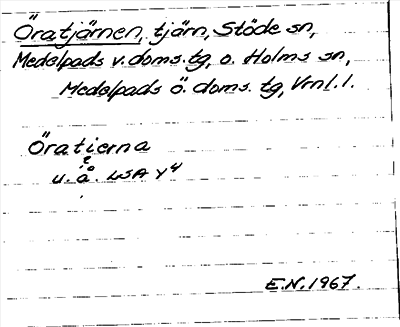 Öratjärnen, tjärn, Stöde sn,
Medelpads v. doms. tg, o. Holms sn,
Medelpads ö. doms. tg, Vrnl. l.
Öratierna
?
u. å. LSA Y4
E.N. 1967.